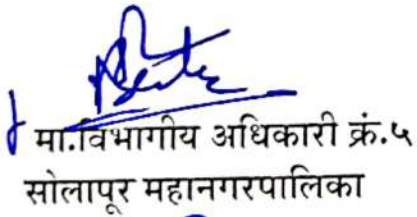 मा.विभागीय अधिकारी क्रं.५
सोलापूर महानगरपालिका